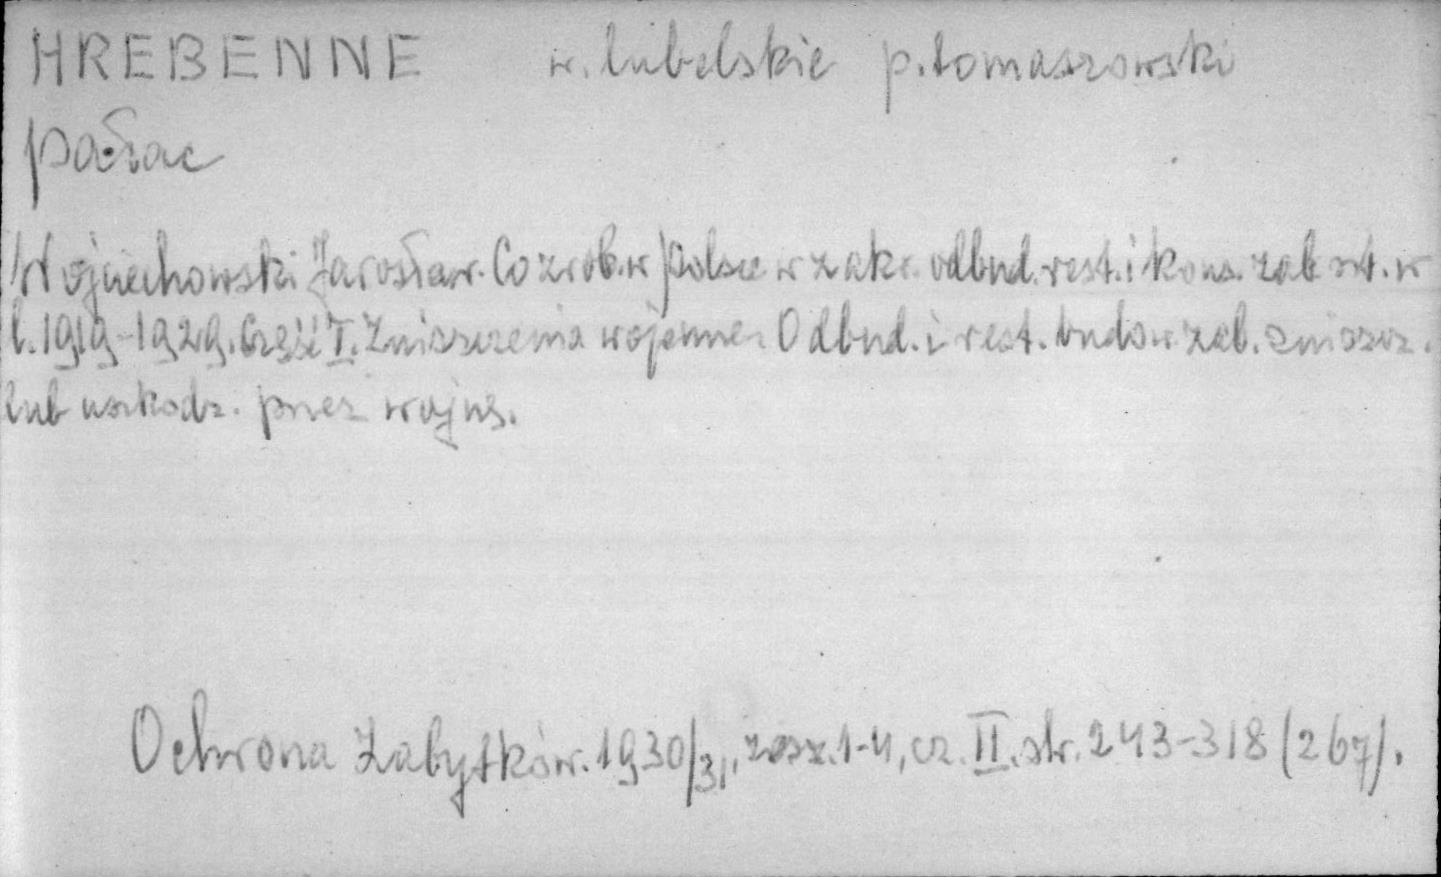 HREBENNE w. lubelskie p. tomaszowski
pałac
Wojciechowski Jarosław. Co zrob. w Polsce w zakr. odbud. rest. i kons. zab. szt. w
l. 1919-1929. Część I. Zniszczenia wojenne. Odbud. i rest. budow. zab. zniszcz.
lub uszkodz. przez wojnę.
Ochrona Zabytków. 1930/31, zesz. 1-4, cz. II. str. 243-318 (267).